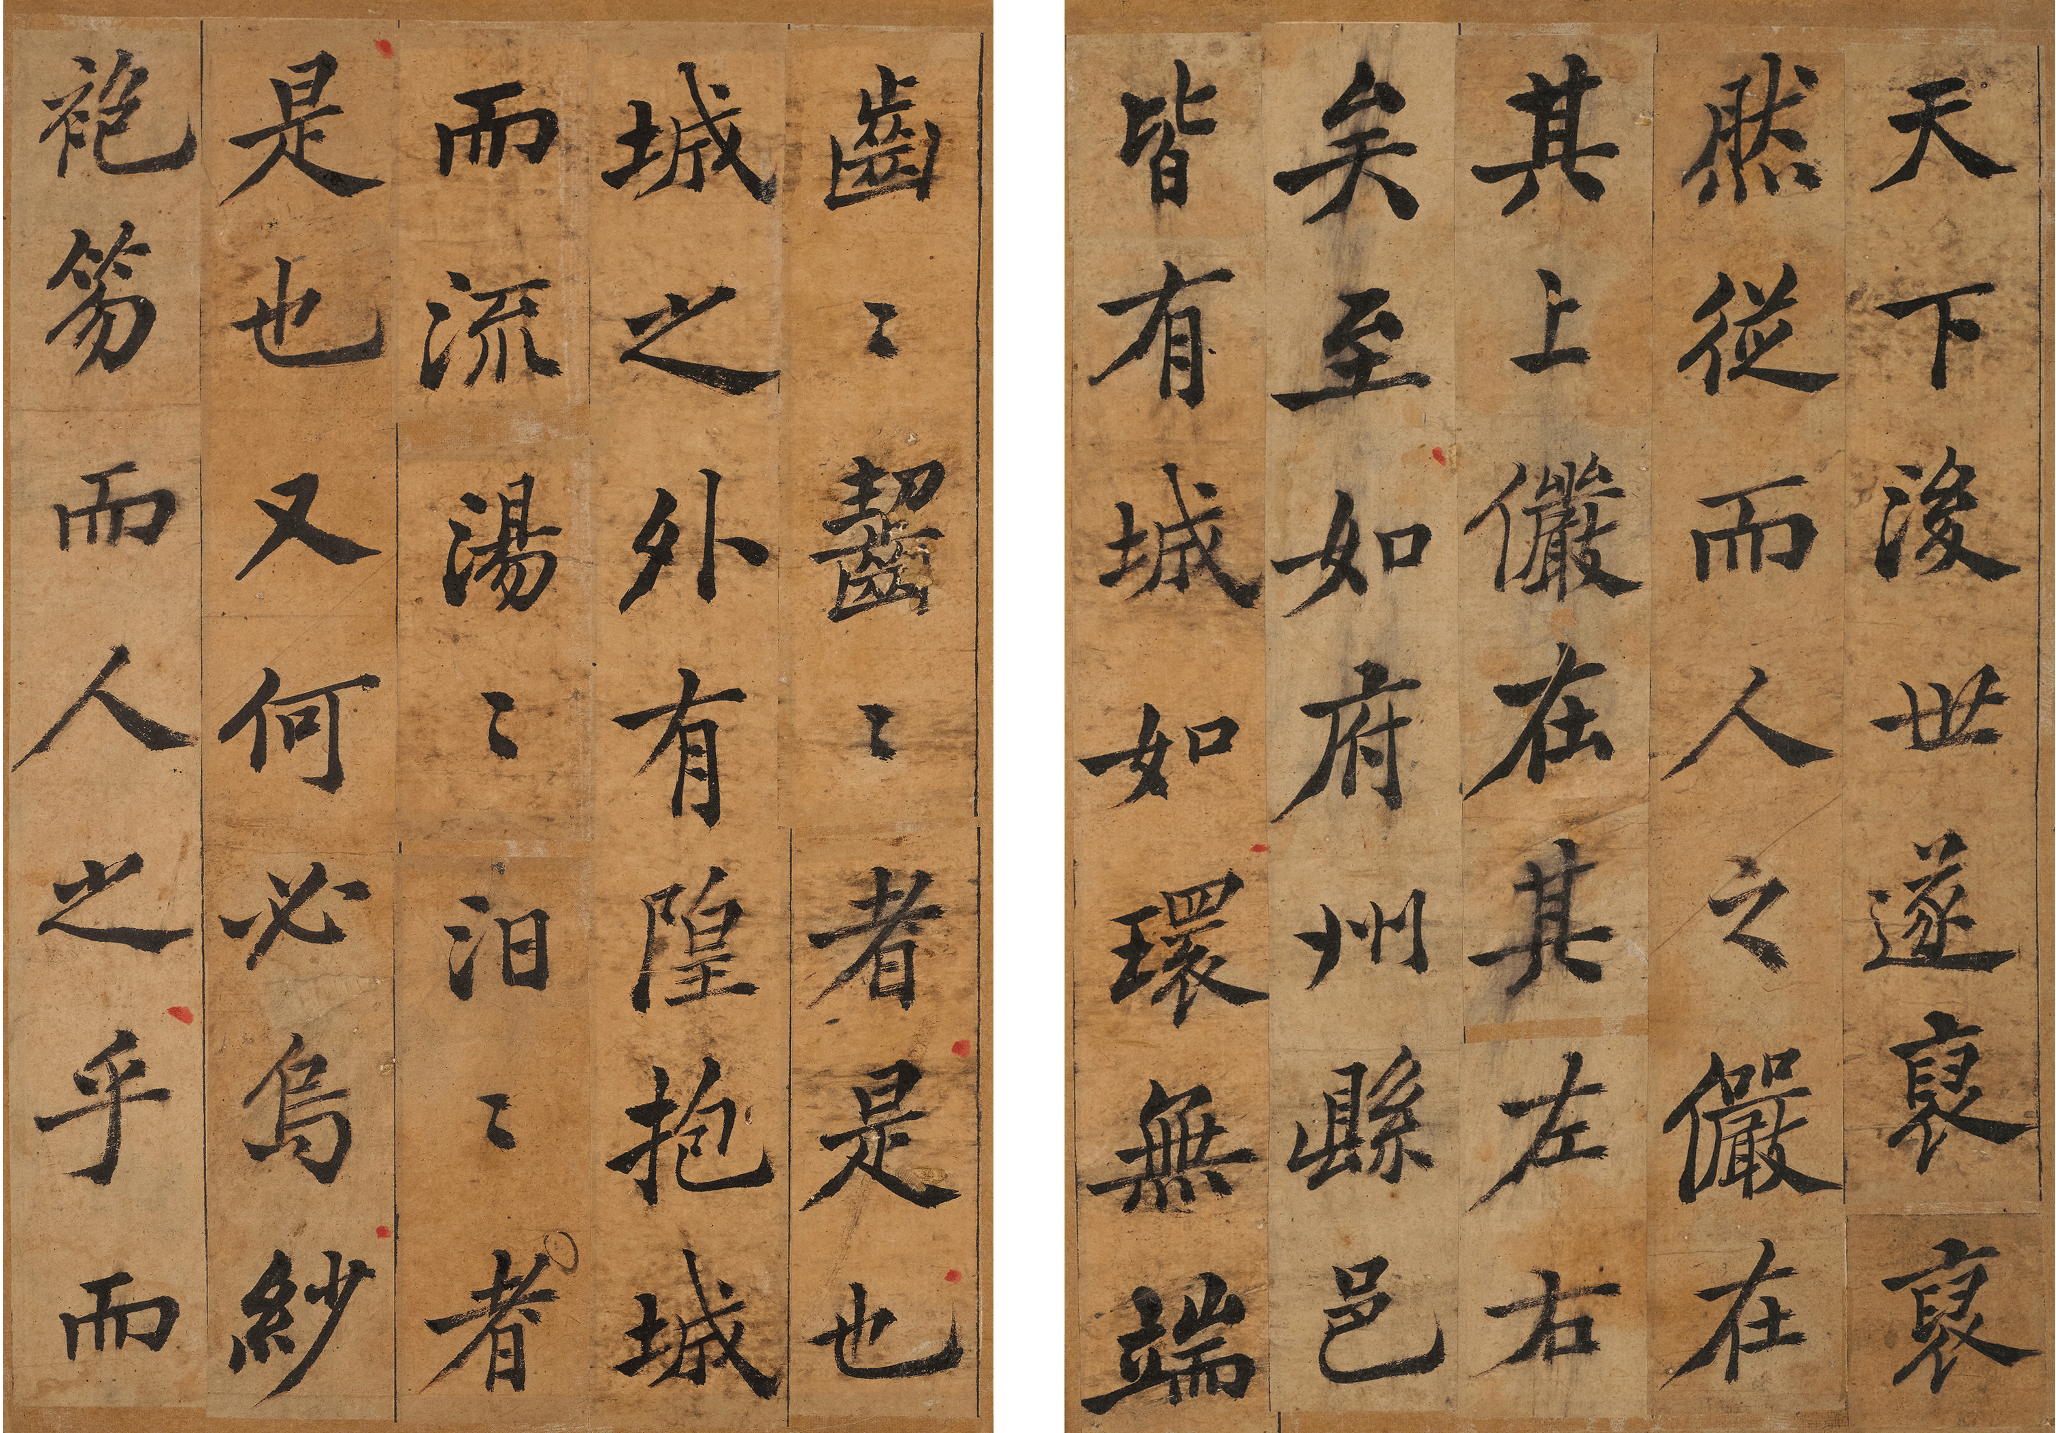 天下後世遂裒裒
然從而人之儼在
其上儼在其左右
矣至如府州縣邑
皆有城如環無端
齒〻齧〻者是也
城之外有隍抱城
而流湯〻汨〻者
是也又何必烏紗
袍笏而人之乎而